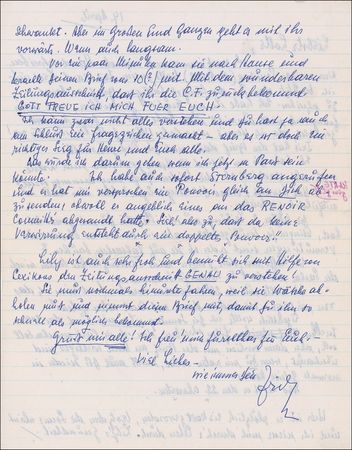 schwankt. Aber im Großen und Ganzen geht es mit ihr
vorwärts. Wenn auch langsam.
Vor ein paar Minuten kam sie nach Hause und
brachte Deinen Brief vom 10 mit. Mit dem wunderbaren
Zeitungsausschnitt, dass ihr die C.F. zurück bekommt
GOTT FREUE ICH MICH FUER EUCH.
Ich kann zwar nicht alles verstehen und Du hast ja auch
ein Fragezeichen gemacht - aber es ist doch ein
richtiger Sieg für Henri und Euch alle.
Was würde ich darum geben wenn ich jetzt in Paris sein
könnte. Ich habe auch sofort Sternberg angerufen
und er hat mir versprochen die Pouvoir gleich an Dich ab
zusenden obwohl er angeblich eines an das RENOIR
Comité abgesandt hatte. Ach! Nur zu, dass da keine
Verwirrung entsteht durch ein doppeltes "Pouvoir"!!
Lilly ist auch sehr froh und bemüht sich mit Hilfe von
Lexikons den Zeitungsausschnitt GENAU zu verstehen.
Sie muss nochmals herunterfahren, weil sie Wäsche ab-
holen muss und nimmt diesen Brief mit, damit Du ihn so
schnell als möglich bekommst.
Grüss mir alle! Ich freu' mich furchtbar für Euch!-
Viel Liebes -
wie immer Dein